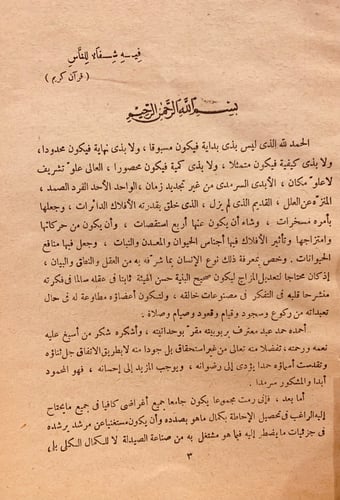 فيه شفاء للناس
( قرآن كريم )
بسم الله الرحمن الرحيم
الحمد لله الذى ليس بذى بداية فيكون مسبوقا ، ولا بذى نهاية فيكون محدودا ،
ولا بذى كيفية فيكون متمثلا ، ولا بذى كمية فيكون محصورا ، العالى علو تشريف
لا علو مكان ، الأبدى السرمدى من غير تجديد زمان ، الواحد الأحد الفرد الصمد ،
المتنزه عن العلل ، القديم الذى لم يزل ، الذى خلق بقدرته الأفلاك الدائرات ، وجعلها
بأمره مسخرات ، وشاء أن يكون عنها أربع استقصات ، وأن يكون من حركاتها
وامتزاجها وتأثير الأفلاك فيها أجناس الحيوان والمعدن والنبات ، وجعل فيها منافع
الحيوانات . وخص بمعرفة ذلك نوع الإنسان بما شرفه به من العقل والنطق والبيان ،
إذ كان محتاجا لتعديل المزاج ليكون صحيح البنية حسن الهيئة ثابتا فى عقله سالما فى فكرته
منشرحا قلبه فى التفكر فى مصنوعات خالقه ، ولتكون أعضاؤه مطاوعة له فى حال
تعبداته من ركوع وسجود وقيام وقعود وصيام وصلاة :
أحمده حمد عبد معترف بربوبيته مقر بوحدانيته ، وأشكره شكر من أسبغ عليه
نعمه ورحمته ، تفضلا منه تعالى من غير استحقاق بل جودا منه لا بطريق الاتفاق جل ثناؤه
وتقدست أسماؤه حمدا يؤدى إلى رضوانه ، ويوجب المزيد إلى إحسانه ، فهو المحمود
أبدا والمشكور سرمدا .
أما بعد ، فإنى رمت مجموعا يكون جامعا جميع أغراضى كافيا فى جميع مايحتاج
إليه الراغب فى تحصيل الإحاطة بكمال ماهو بصدده وأن يكون مستغنيا عن مرشد يرشده
فى جزئيات ما يضطر إليه فيما هو مشتغل به من صناعة الصيدلة لا للكمال الكلى بل
٣